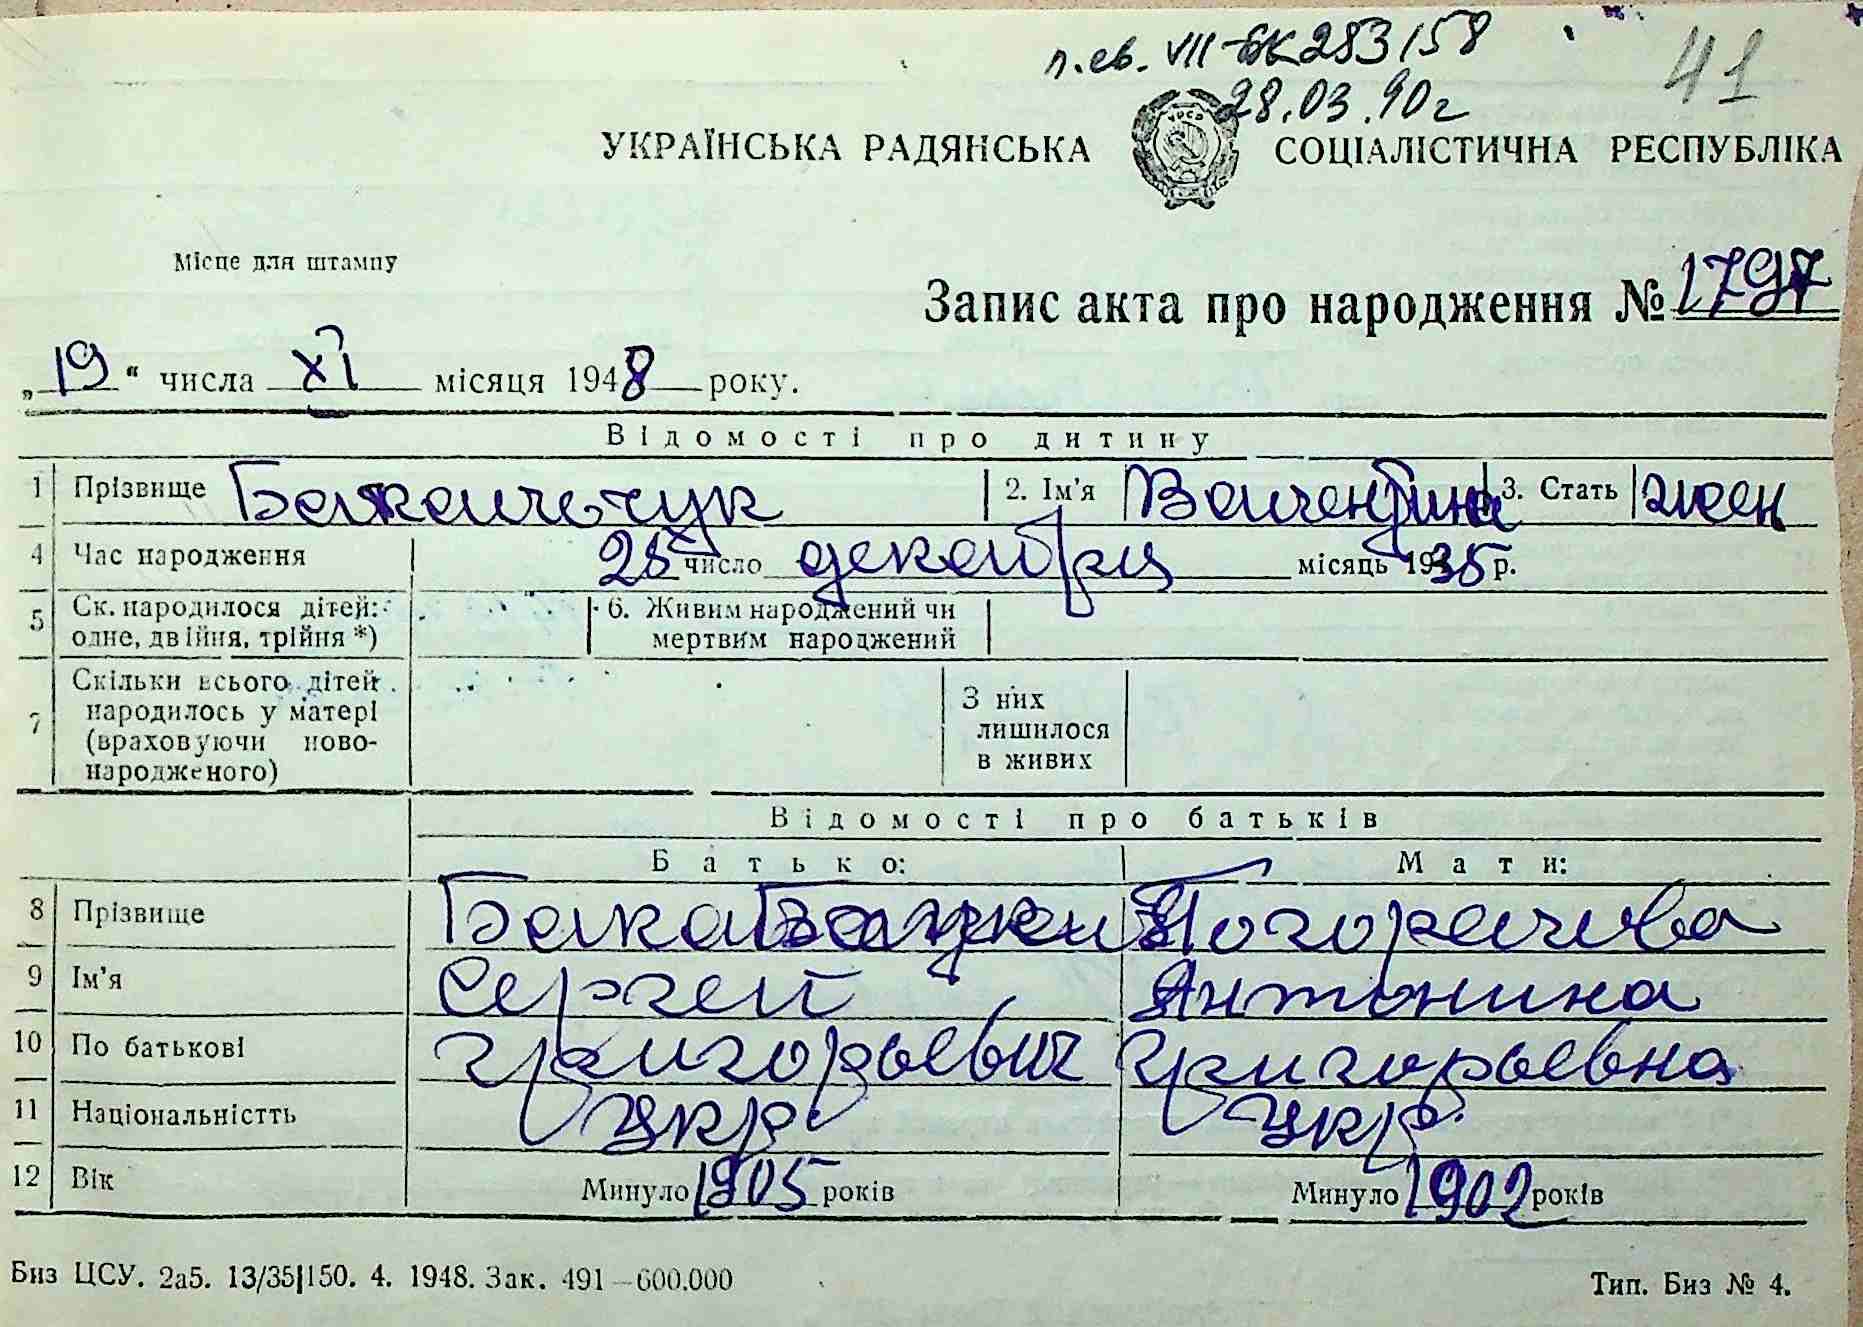 п.св. VII-БК 283158
41
28.03.90г
УКРАЇНСЬКА РАДЯНСЬКА СОЦІАЛІСТИЧНА РЕСПУБЛІКА
УРСР
Місце для штампу
Запис акта про народження № 1797
„19“ числа XI місяця 1948 року.
Відомості про дитину
1 Прізвище 2. Ім'я Валентина 3. Стать жен
4 Час народження 25 число декабря місяць 1935 р.
5 Ск. народилося дітей: одне, двійня, трійня *) 6. Живим народжений чи мертвим народжений
7 Скільки всього дітей народилось у матері (враховуючи ново-народженого) З них лишилося в живих
Відомості про батьків
Батько: Мати:
8 Прізвище Погорелова
9 Ім'я Сергей Антонина
10 По батькові Григорьевич Григорьевна
11 Національністть укр. укр.
12 Вік Минуло 1905 років Минуло 1902 років
Биз ЦСУ. 2а5. 13/35|150. 4. 1948. Зак. 491—600.000 Тип. Биз № 4.